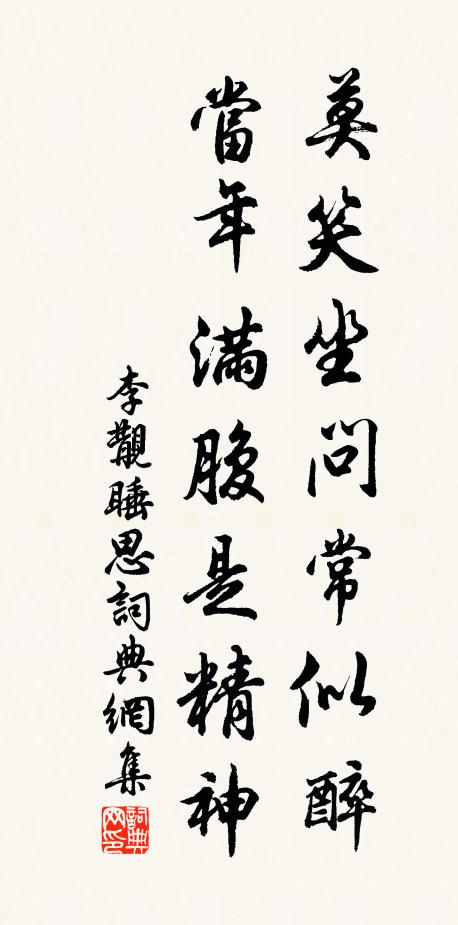 莫笑坐問常似醉
當年滿腹是精神
李覯睡思詞典網集
詞典网印